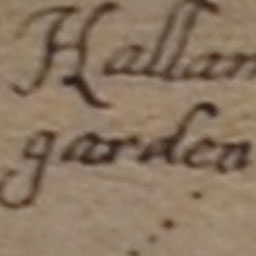 Hallan
garden